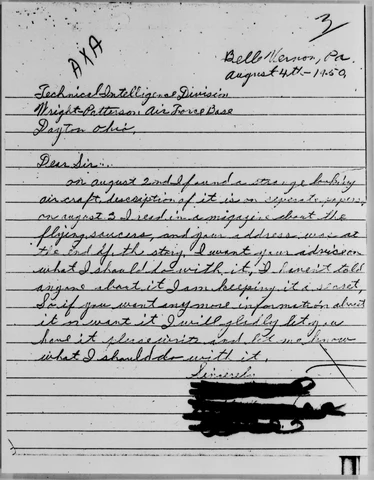 3
AXA
Belle Vernon, Pa.
August 4th-1950,
Technical Intelligence Division
Wright-Patterson Air Force Base
Dayton Ohio,
Dear Sir:
on august 2nd I found a strange looking
air craft, description of it is on seperate papers,
on august 3 I read in a magazine about the
flying saucers, and your address was at
the end of the story. I want your advise on
what I should do with it, I haven't told
anyone about it I am keeping it a secret,
So if you want any more information about
it or want it I will gladly let you
have it please write and let me know
what I should do with it.
Sincerely